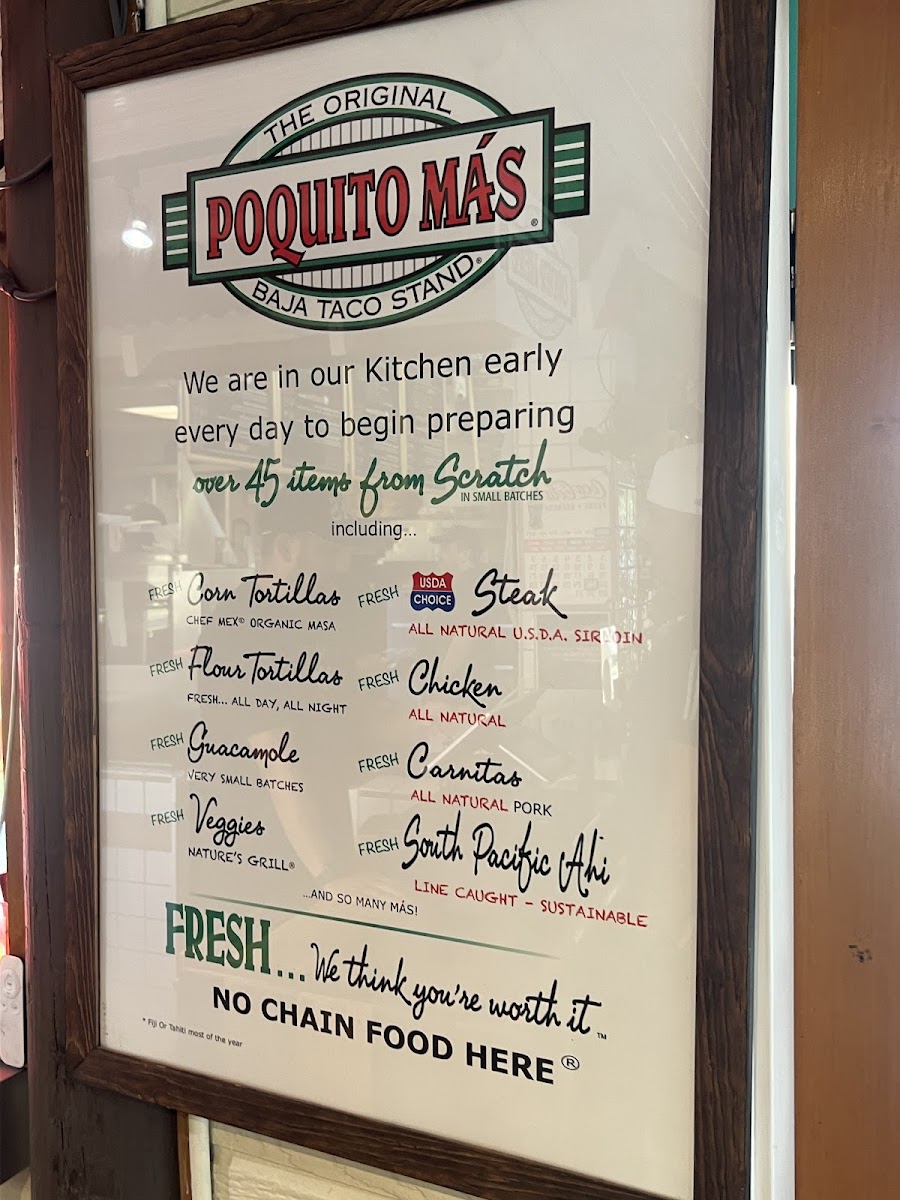 THE ORIGINAL
POQUITO MÁS®
BAJA TACO STAND®
We are in our Kitchen early
every day to begin preparing
over 45 items from Scratch
IN SMALL BATCHES
including...
FRESH Corn Tortillas
CHEF MEX® ORGANIC MASA
FRESH Flour Tortillas
FRESH... ALL DAY, ALL NIGHT
FRESH Guacamole
VERY SMALL BATCHES
FRESH Veggies
NATURE'S GRILL®
FRESH USDA CHOICE Steak
ALL NATURAL U.S.D.A. SIRLOIN
FRESH Chicken
ALL NATURAL
FRESH Carnitas
ALL NATURAL PORK
FRESH South Pacific Ahi
LINE CAUGHT - SUSTAINABLE
...AND SO MANY MÁS!
FRESH... We think you're worth it™
NO CHAIN FOOD HERE®
* Fiji Or Tahiti most of the year